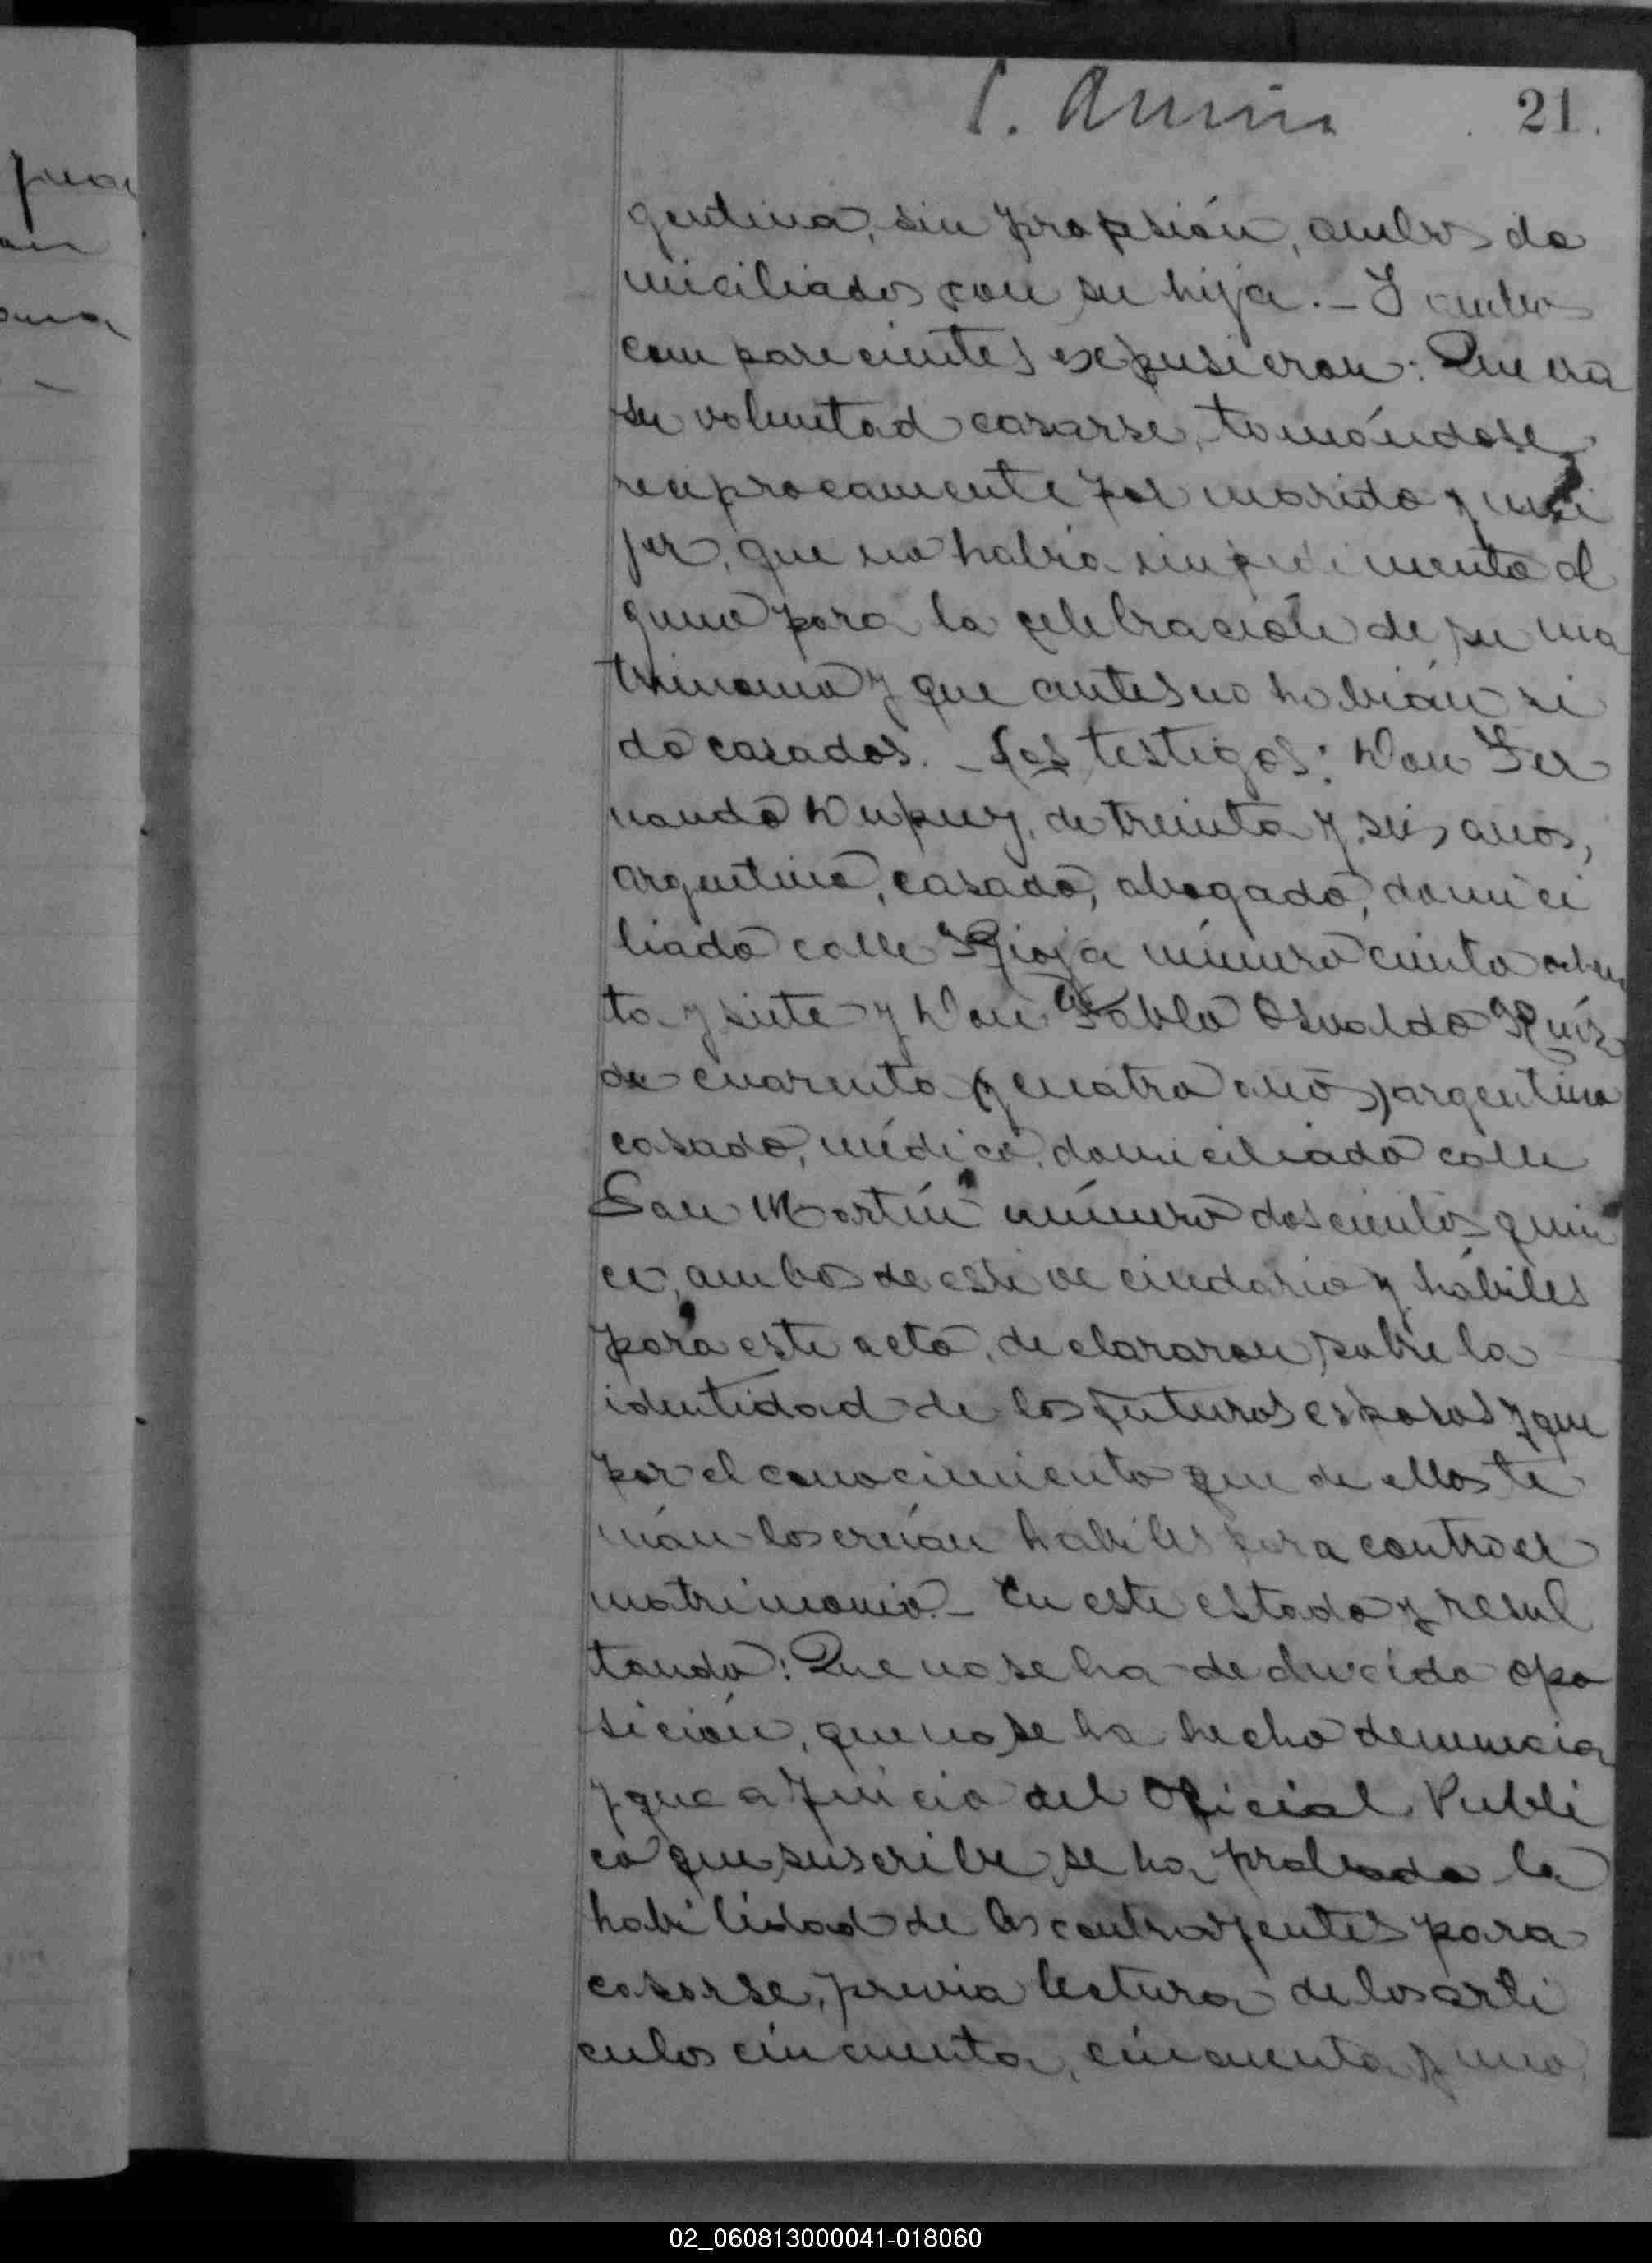 21.
gentina, sin profesión, ambos do
miciliados con su hija.- I ambos
comparecientes expusieron: Que era
su voluntad casarse, tomándose
reciprocamente por marido y mu
jer, que no habia impedimento al
guno para la celebración de su ma
trimonio y que antes no habian si
do casados. - Los testigos: Don Fer
nando Dupuy, de treinta y seis anos,
argentino, casado, abogado, domici
liado calle Rioja número ciento ochen
ta y siete y Don Pablo Osvaldo Ruíz
de cuarenta y cuatro anos, argentino
casado, médico, domiciliado calle
San Martín número doscientos quin
ce, ambos de este vecindario y hábiles
para este acto, declararon sobre la
identidad de los futuros esposos y que
por el conocimiento que de ellos te
nian los creían habiles para contraer
matrimonio.- En este estado y resul
tando: Que no se ha deducido opo
sición, que no se ha hecho denuncia
y que a juicio del Oficial Publi
co que suscribe, se ha probado la
habilidad de los contrayentes para
casarse, previa lectura de los arti
culos cincuenta, cincuenta y uno,
02_060813000041-018060